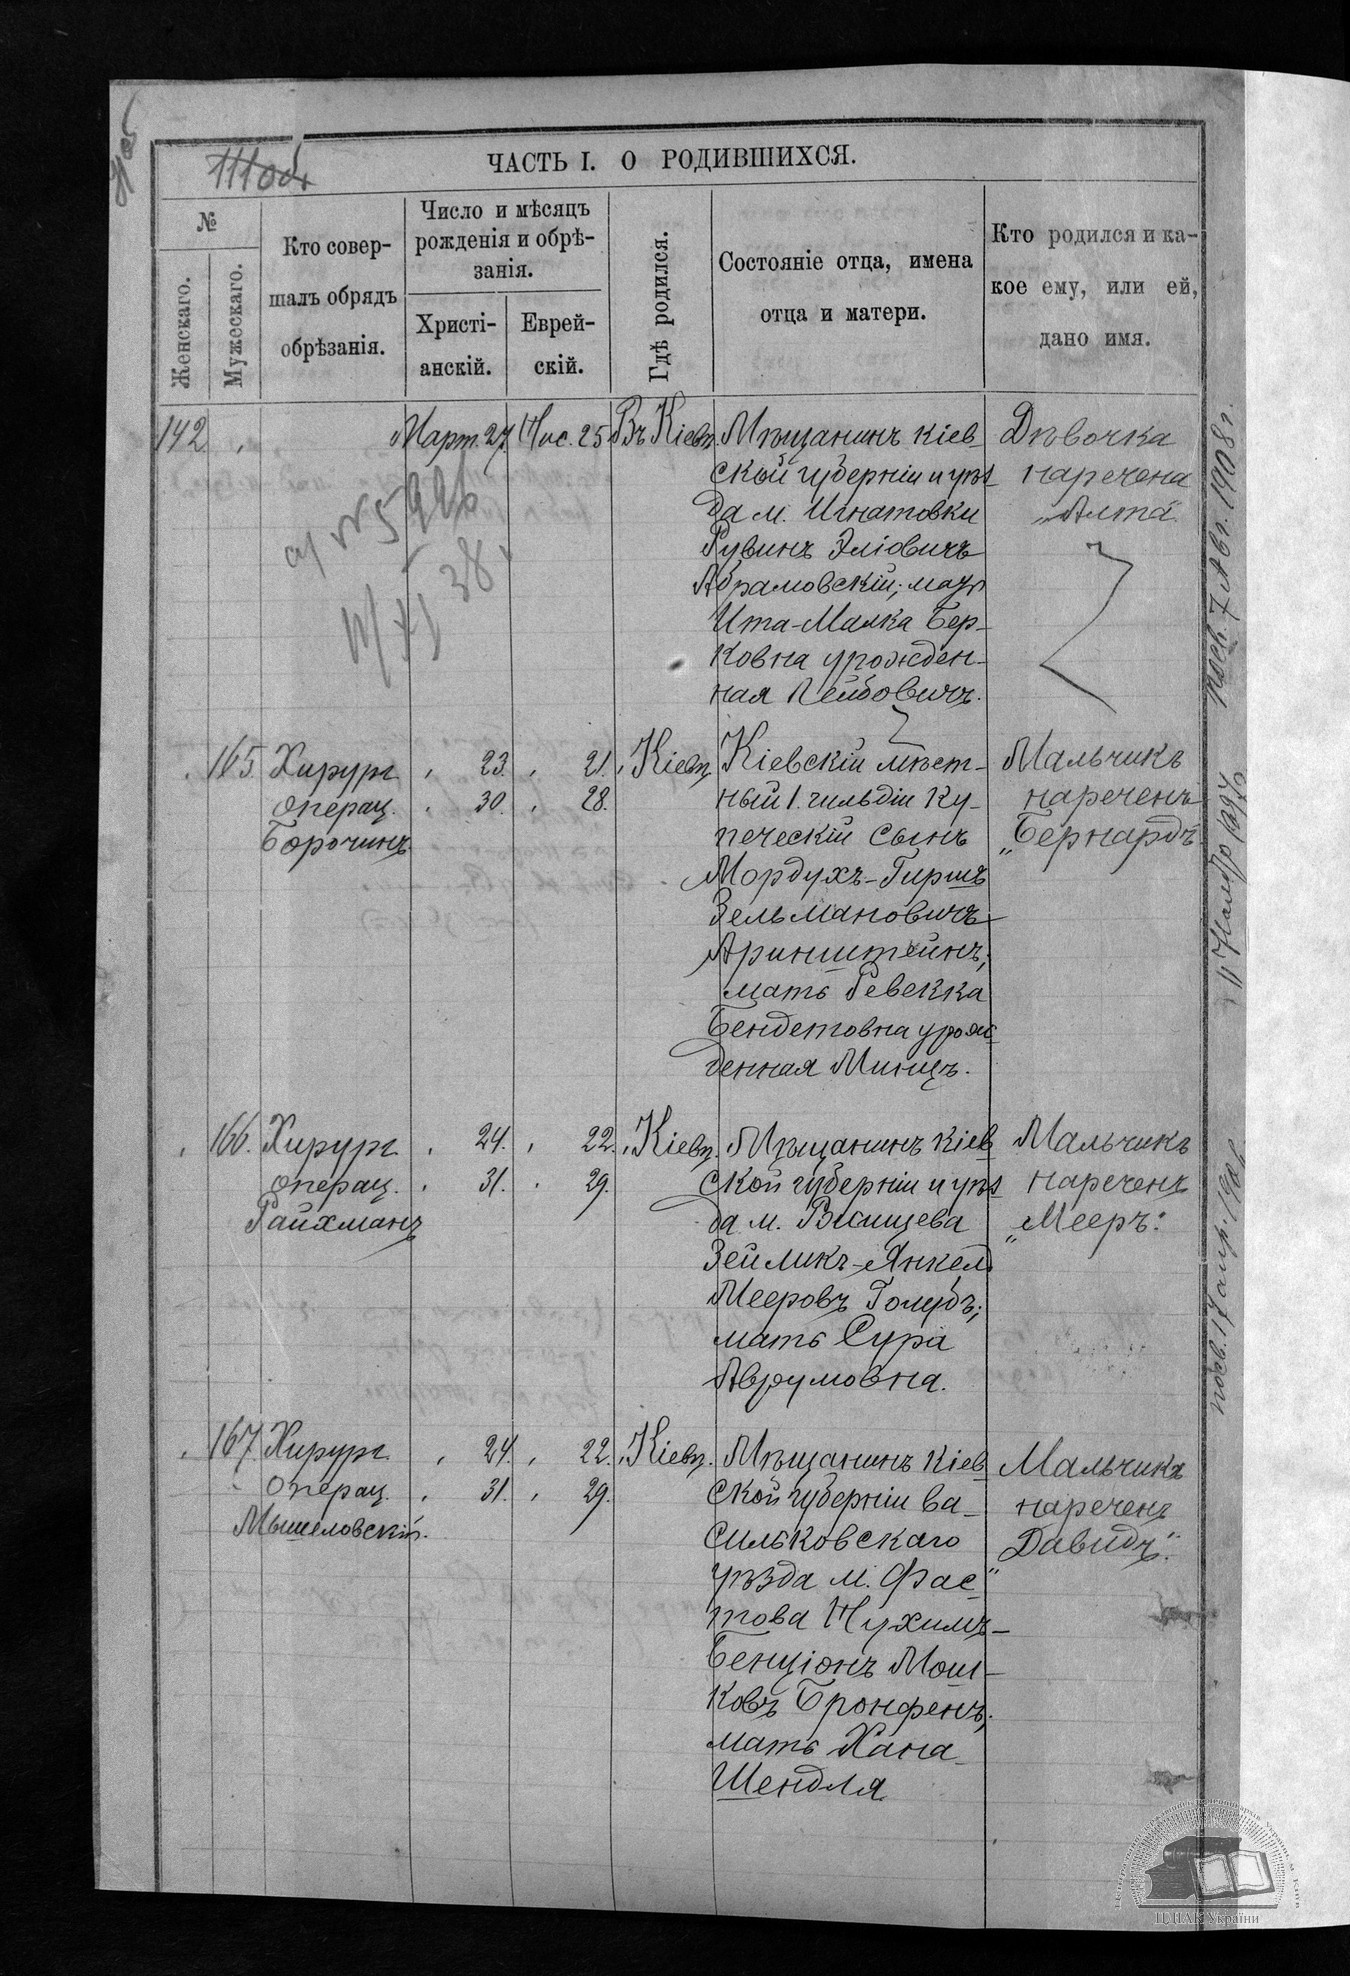 111об
ЧАСТЬ I. О РОДИВШИХСЯ.
№
Женскаго.
Мужескаго.
Кто совер-
шалъ обрядъ
обрѣзанія.
Число и мѣсяцъ
рожденія и обрѣ-
занія.
Христі-
анскій.
Еврей-
скій.
Гдѣ родился.
Состояніе отца, имена
отца и матери.
Кто родился и ка-
кое ему, или ей,
дано имя.
142 Март. 27. Нис. 25 Въ Кіевѣ.
Мѣщанинъ Кіев
ской губерніи и уѣз
да м. Игнатовки
Рувинъ Эліовичъ
Абрамовскій; мать
Ита-Малка Бер-
ковна урожден-
ная Лейбовичъ.
Дѣвочка
наречена
„Алта"
165. Хирург 23. 21. Кіевѣ
операц. 30. 28.
Борочинъ
Кіевскій мѣст-
ный 1. гильдіи ку-
печескій сынъ
Мордухъ-Гиршъ
Зельмановичъ
Аринштейнъ;
мать Ревекка
Бендетовна урож
денная Минцъ.
Мальчикъ
нареченъ
„Бернардъ"
166. Хирург 24. 22. Кіевѣ.
операц. 31. 29.
Райхманъ
Мѣщанинъ Кіев
ской губерніи и уѣз
да м.
Зейликъ-Янкель
Мееровъ Голубъ;
мать Сура
Аврумовна.
Мальчикъ
нареченъ
„Мееръ".
167. Хирург 24. 22. Кіевѣ.
операц. 31. 29.
Мышеловскій.
Мѣщанинъ Кіев
ской губерніи Ва-
сильковскаго
уѣзда м. Фас"
това Нухимъ-
Бенціонъ Мош-
ковъ Бронфенъ;
мать Хана
Шендля
Мальчикъ
нареченъ
Давидъ".
7 Авг. 1908 г.
17 апр.
ЦДІАК України